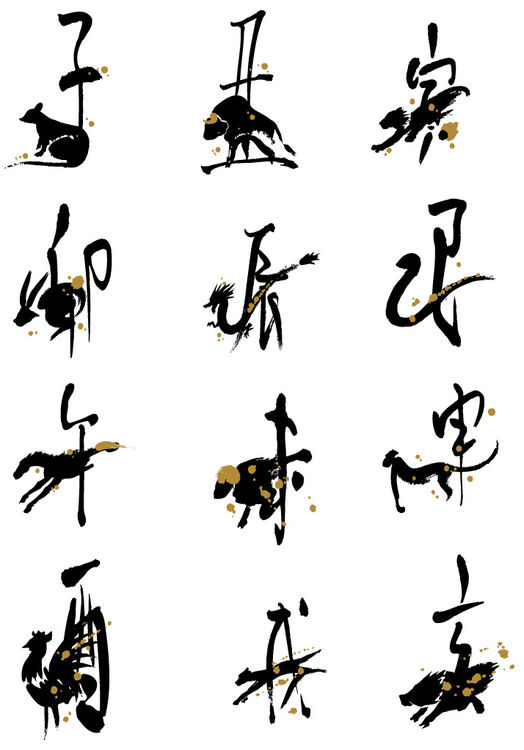 子 丑 寅
卯 辰 巳
午 未 申
酉 戌 亥